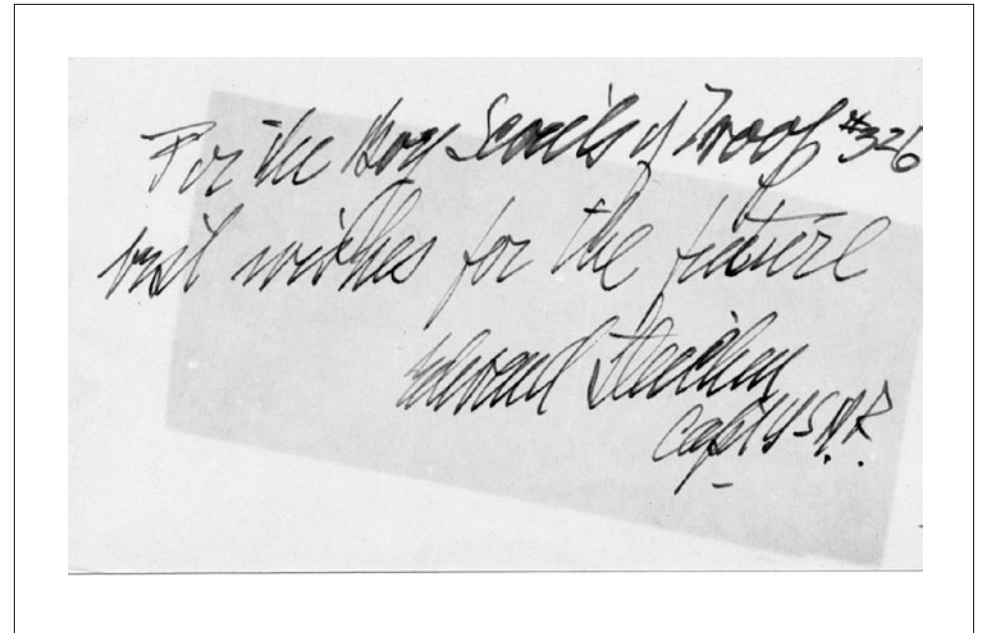 For the Boy Scouts of Troop #326
best wishes for the future
Edward Steichen
Capt USNR.